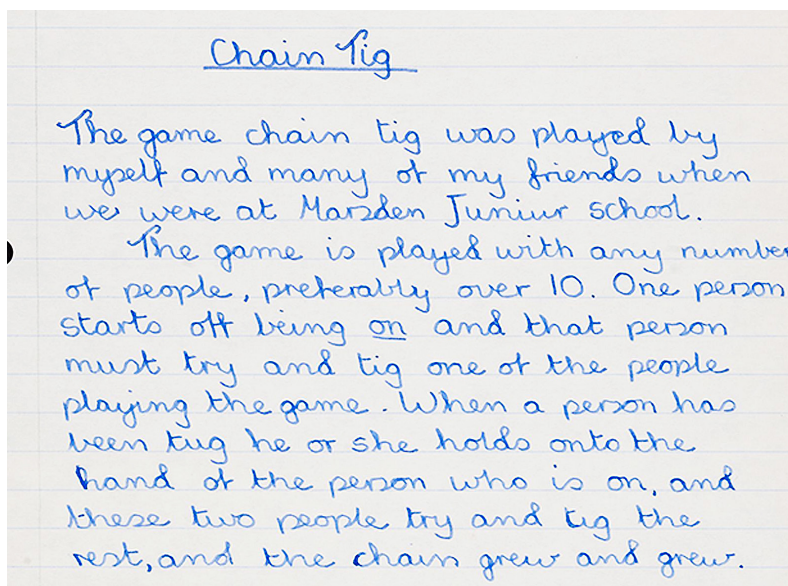 Chain Tig
The game chain tig was played by
myself and many of my friends when
we were at Marsden Junior school.
The game is played with any number
of people, preferably over 10. One person
starts off being on and that person
must try and tig one of the people
playing the game. When a person has
been tug he or she holds onto the
hand of the person who is on, and
these two people try and tig the
rest, and the chain grew and grew.